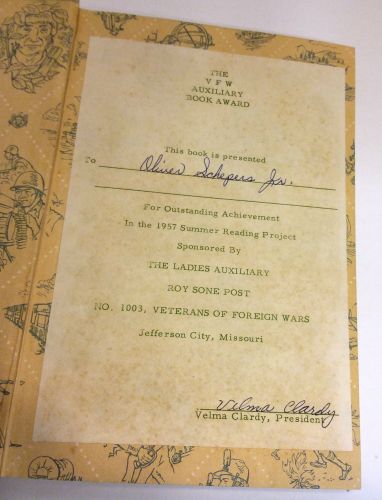 THE
V F W
AUXILIARY
BOOK AWARD
This book is presented
To Oliver Schepers Jr.
For Outstanding Achievement
In the 1957 Summer Reading Project
Sponsored By
THE LADIES AUXILIARY
ROY SONE POST
NO. 1003, VETERANS OF FOREIGN WARS
Jefferson City, Missouri
Vilma Clardy
Velma Clardy, President